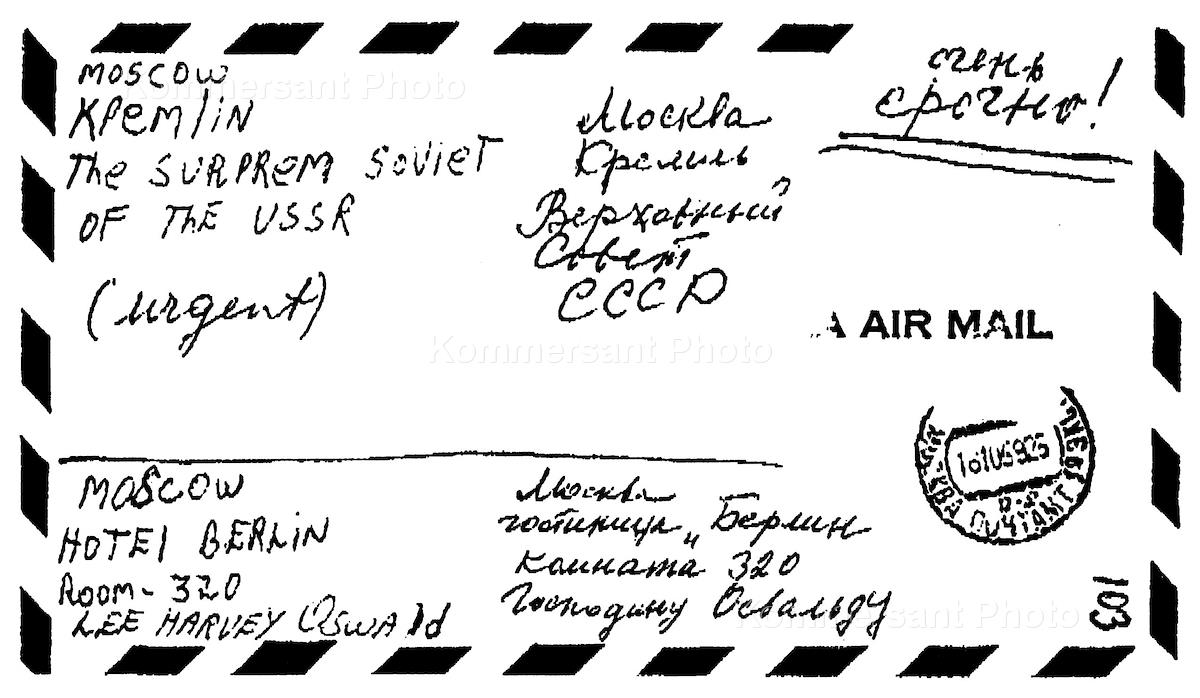 MOSCOW
KPEMlIN
The SURPREM SOVIET
OF THE USSR
(urgent)
Москва
Кремль
Верховный
Совет
СССР
очень
срочно!
AIR MAIL
MOSCOW
HOTEl BERLIN
ROOM - 320
LEE HARVEY OSWAld
Москва
гостиница „Берлин
Комната 320
Господину Освальду
ПОЧТАМТ
103
Kommersant Photo
Kommersant Photo
Kommersant Photo